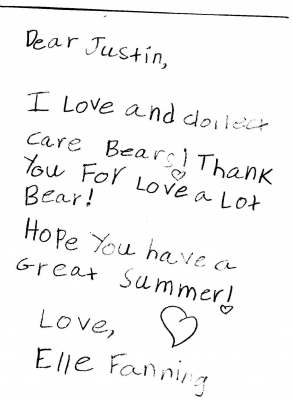 Dear Justin,
I Love and collect
Care Bears! Thank
You For Love a Lot
Bear!
Hope You have a
Great Summer!
Love,
Elle Fanning